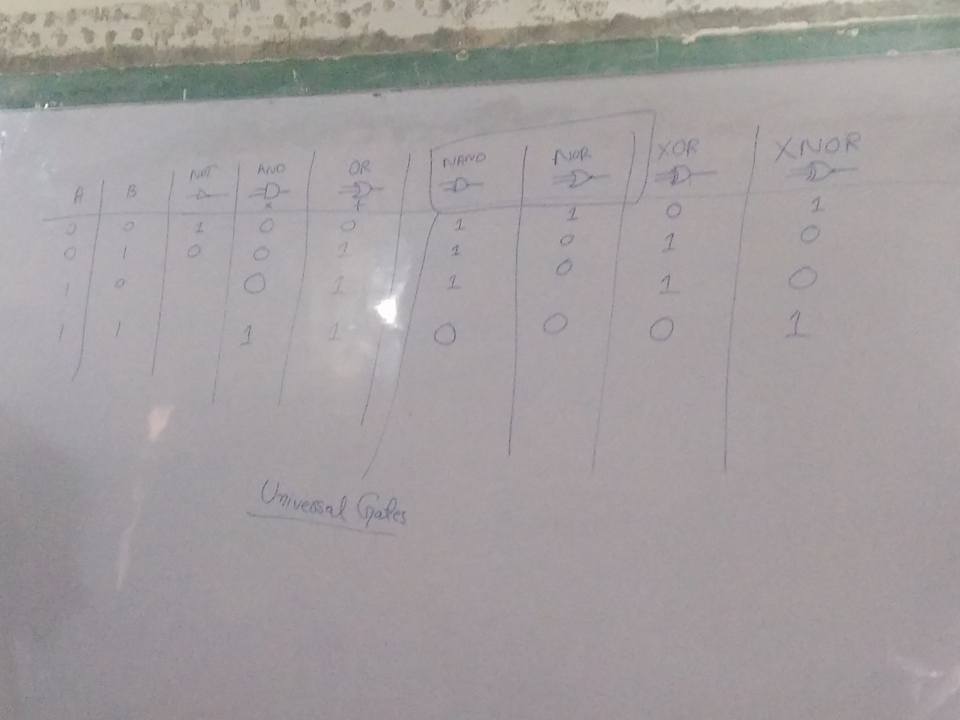 A B NOT AND OR NAND NOR XOR XNOR
0 0 1 0 0 1 1 0 1
0 1 0 0 1 1 0 1 0
1 0 0 1 1 0 1 0
1 1 1 1 0 0 0 1
Universal Gates